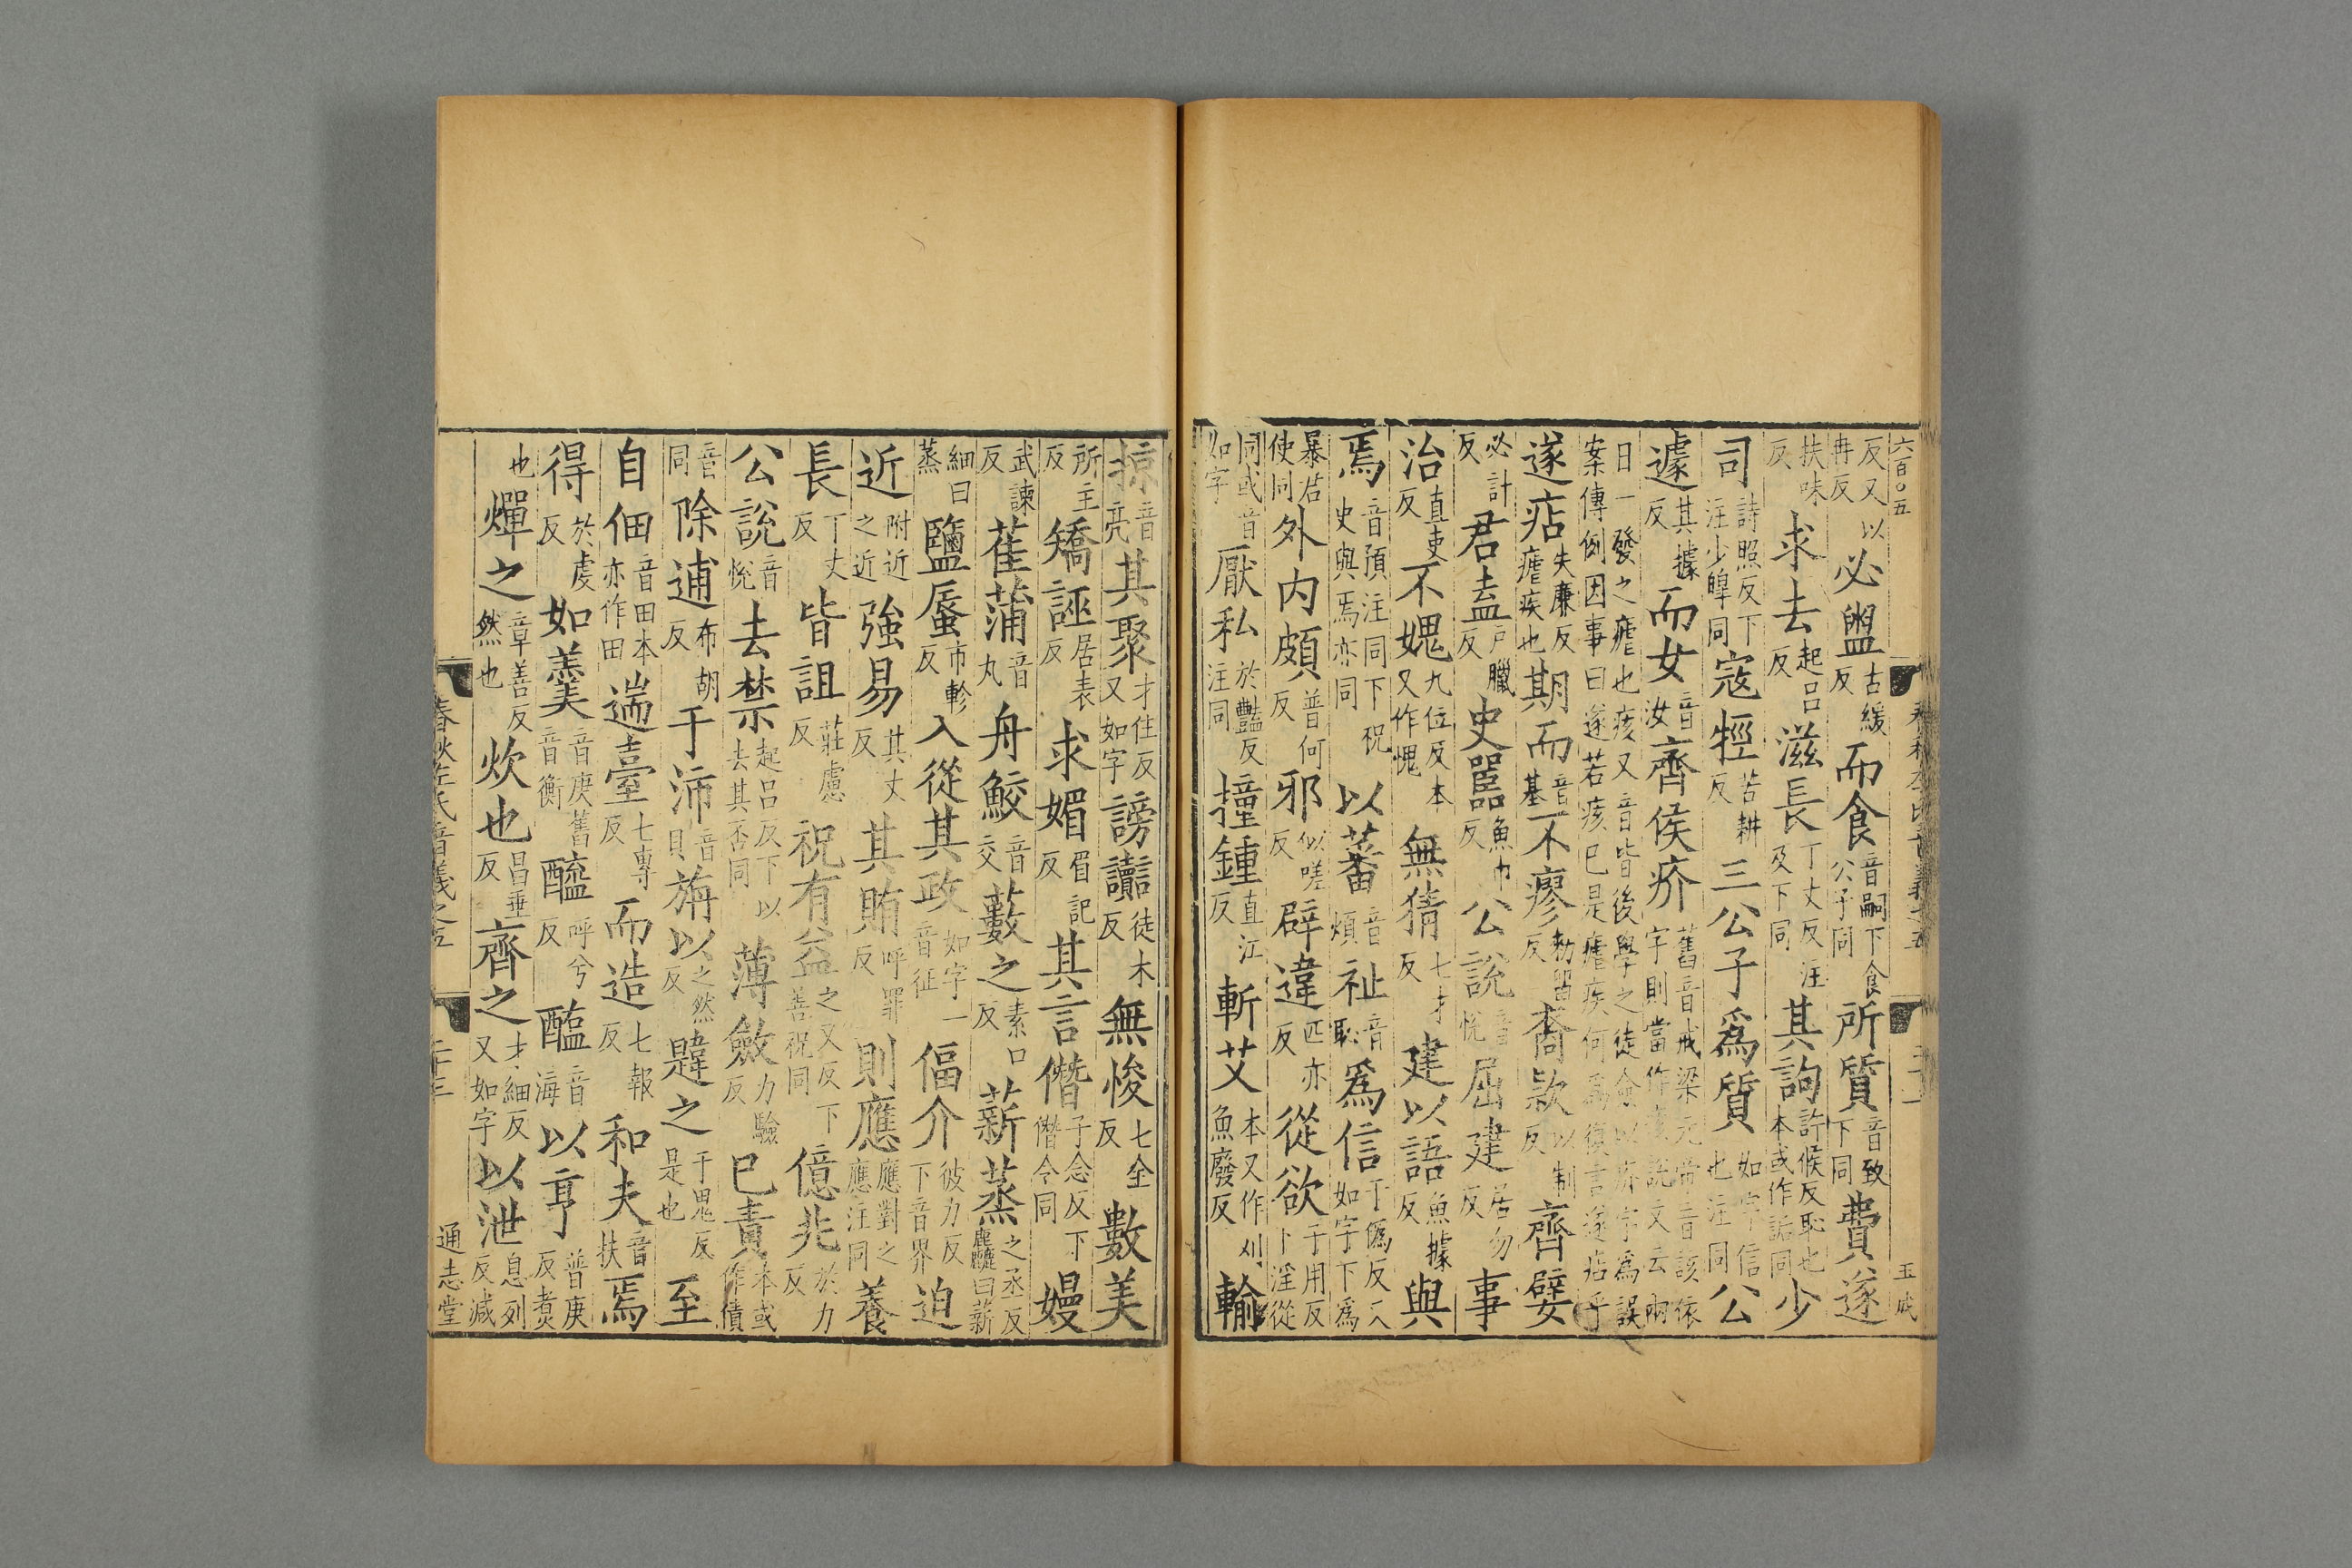 六百〇五
反又以冉反 必盥古緩反 而食音嗣下食公子同 所質音致下同 費遂
扶味反 求去起呂反 滋長丁丈反注及下同 其詢許候反恥也本或作詬同 少
司詩照反下注少皞同 寇牼苦耕反 三公子爲質如字信也注同 公
遽其據反 而女音汝 齊侯疥舊音戒梁元帝音該依字則當作痎說文云兩
日一發之瘧也痎又音皆後學之徒僉以疥字爲誤案傳例因事曰遂若痎已是瘧疾何爲復言遂痁乎
遂痁失廉反瘧疾也 期而音基 不瘳勑留反 裔款以制反 齊嬖
必計反 君盍戶臘反 史嚚魚巾反 公說音悅 屈建居勿反 事
治直吏反 不媿九位反本又作愧 無猜七才反 建以語魚據反 與
焉音預注同下祝史與焉亦同 以蕃音煩 祉音恥 爲信于僞反又如字下爲
暴君使同 外内頗普何反 邪似嗟反 辟違匹亦反 從欲子用反下淫從
同或音如字 厭私於豔反注同 撞鍾直江反 斬艾本又作刈魚廢反 輸
掠音亮 其聚才住反又如字 謗讟徒木反 無悛七全反 數美
所主反 矯誣居表反 求媚眉記反 其言僭子念反下僭令同 嫚
武諫反 萑蒲音丸 舟鮫音交 藪之素口反 薪蒸之丞反麤曰薪
細曰蒸 鹽蜃市軫反 入從其政如字一音征 偪介彼力反下音界 迫
近附近之近 強易其丈反 其賄呼罪反 則應應對之應注同 養
長丁丈反 皆詛莊慮反 祝有益之又反下善祝同 億兆於力反
公說音悅 去禁起呂反下以去其否同 薄斂力驗反 已責本或作債
音同 除逋布胡反 于沛音貝 旃以之然反 韙之于鬼反是也 至
自佃音田本亦作田 遄臺七專反 而造七報反 和夫音扶 焉
得於虔反 如羹音庚舊音衡 醯呼兮反 醢音海 以亨普庚反煑
也 燀之章善反然也 炊也昌垂反 齊之才細反又如字 以泄息列反減
春秋左氏音義之五 通志堂